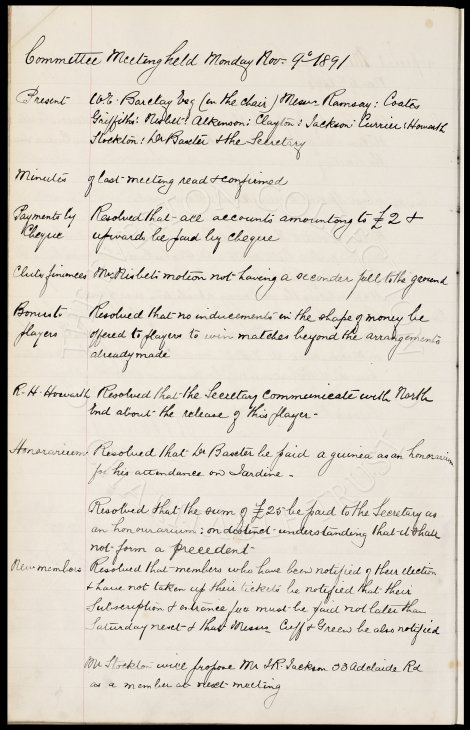 Committee Meeting held Monday Nov. 9o 1891
Present W. E. Barclay Esq (in the chair) Messrs Ramsay: Coates
Griffiths: Nisbet: Atkinson: Clayton: Jackson: Currier: Howarth
Stockton: Dr Baxter & the Secretary
Minutes of last meeting read & confirmed
Payments by Cheque Resolved that all accounts amounting to £2 &
upwards be paid by cheque
Club finances Mr Nisbets motion not having a seconder fell to the ground
Bonus to players Resolved that no inducements in the shape of money be
offered to players to win matches beyond the arrangements
already made
R. H. Howarth Resolved that the Secretary communicate with North
End about the release of this player.
Honorarium Resolved that Dr Baxter be paid a guinea as an honorarium
for his attendance on Jardine.
Resolved that the sum of £25 be paid to the Secretary as
an honourarium: on distinct understanding that it shall
not form a precedent
New members Resolved that members who have been notified of their election
& have not taken up their tickets be notified that their
Subscription & entrance fee must be paid not later than
Saturday next & that Messrs Cuff & Green be also notified
Mr Stockton will propose Mr J. R. Jackson 33 Adelaide Rd
as a member at next meeting